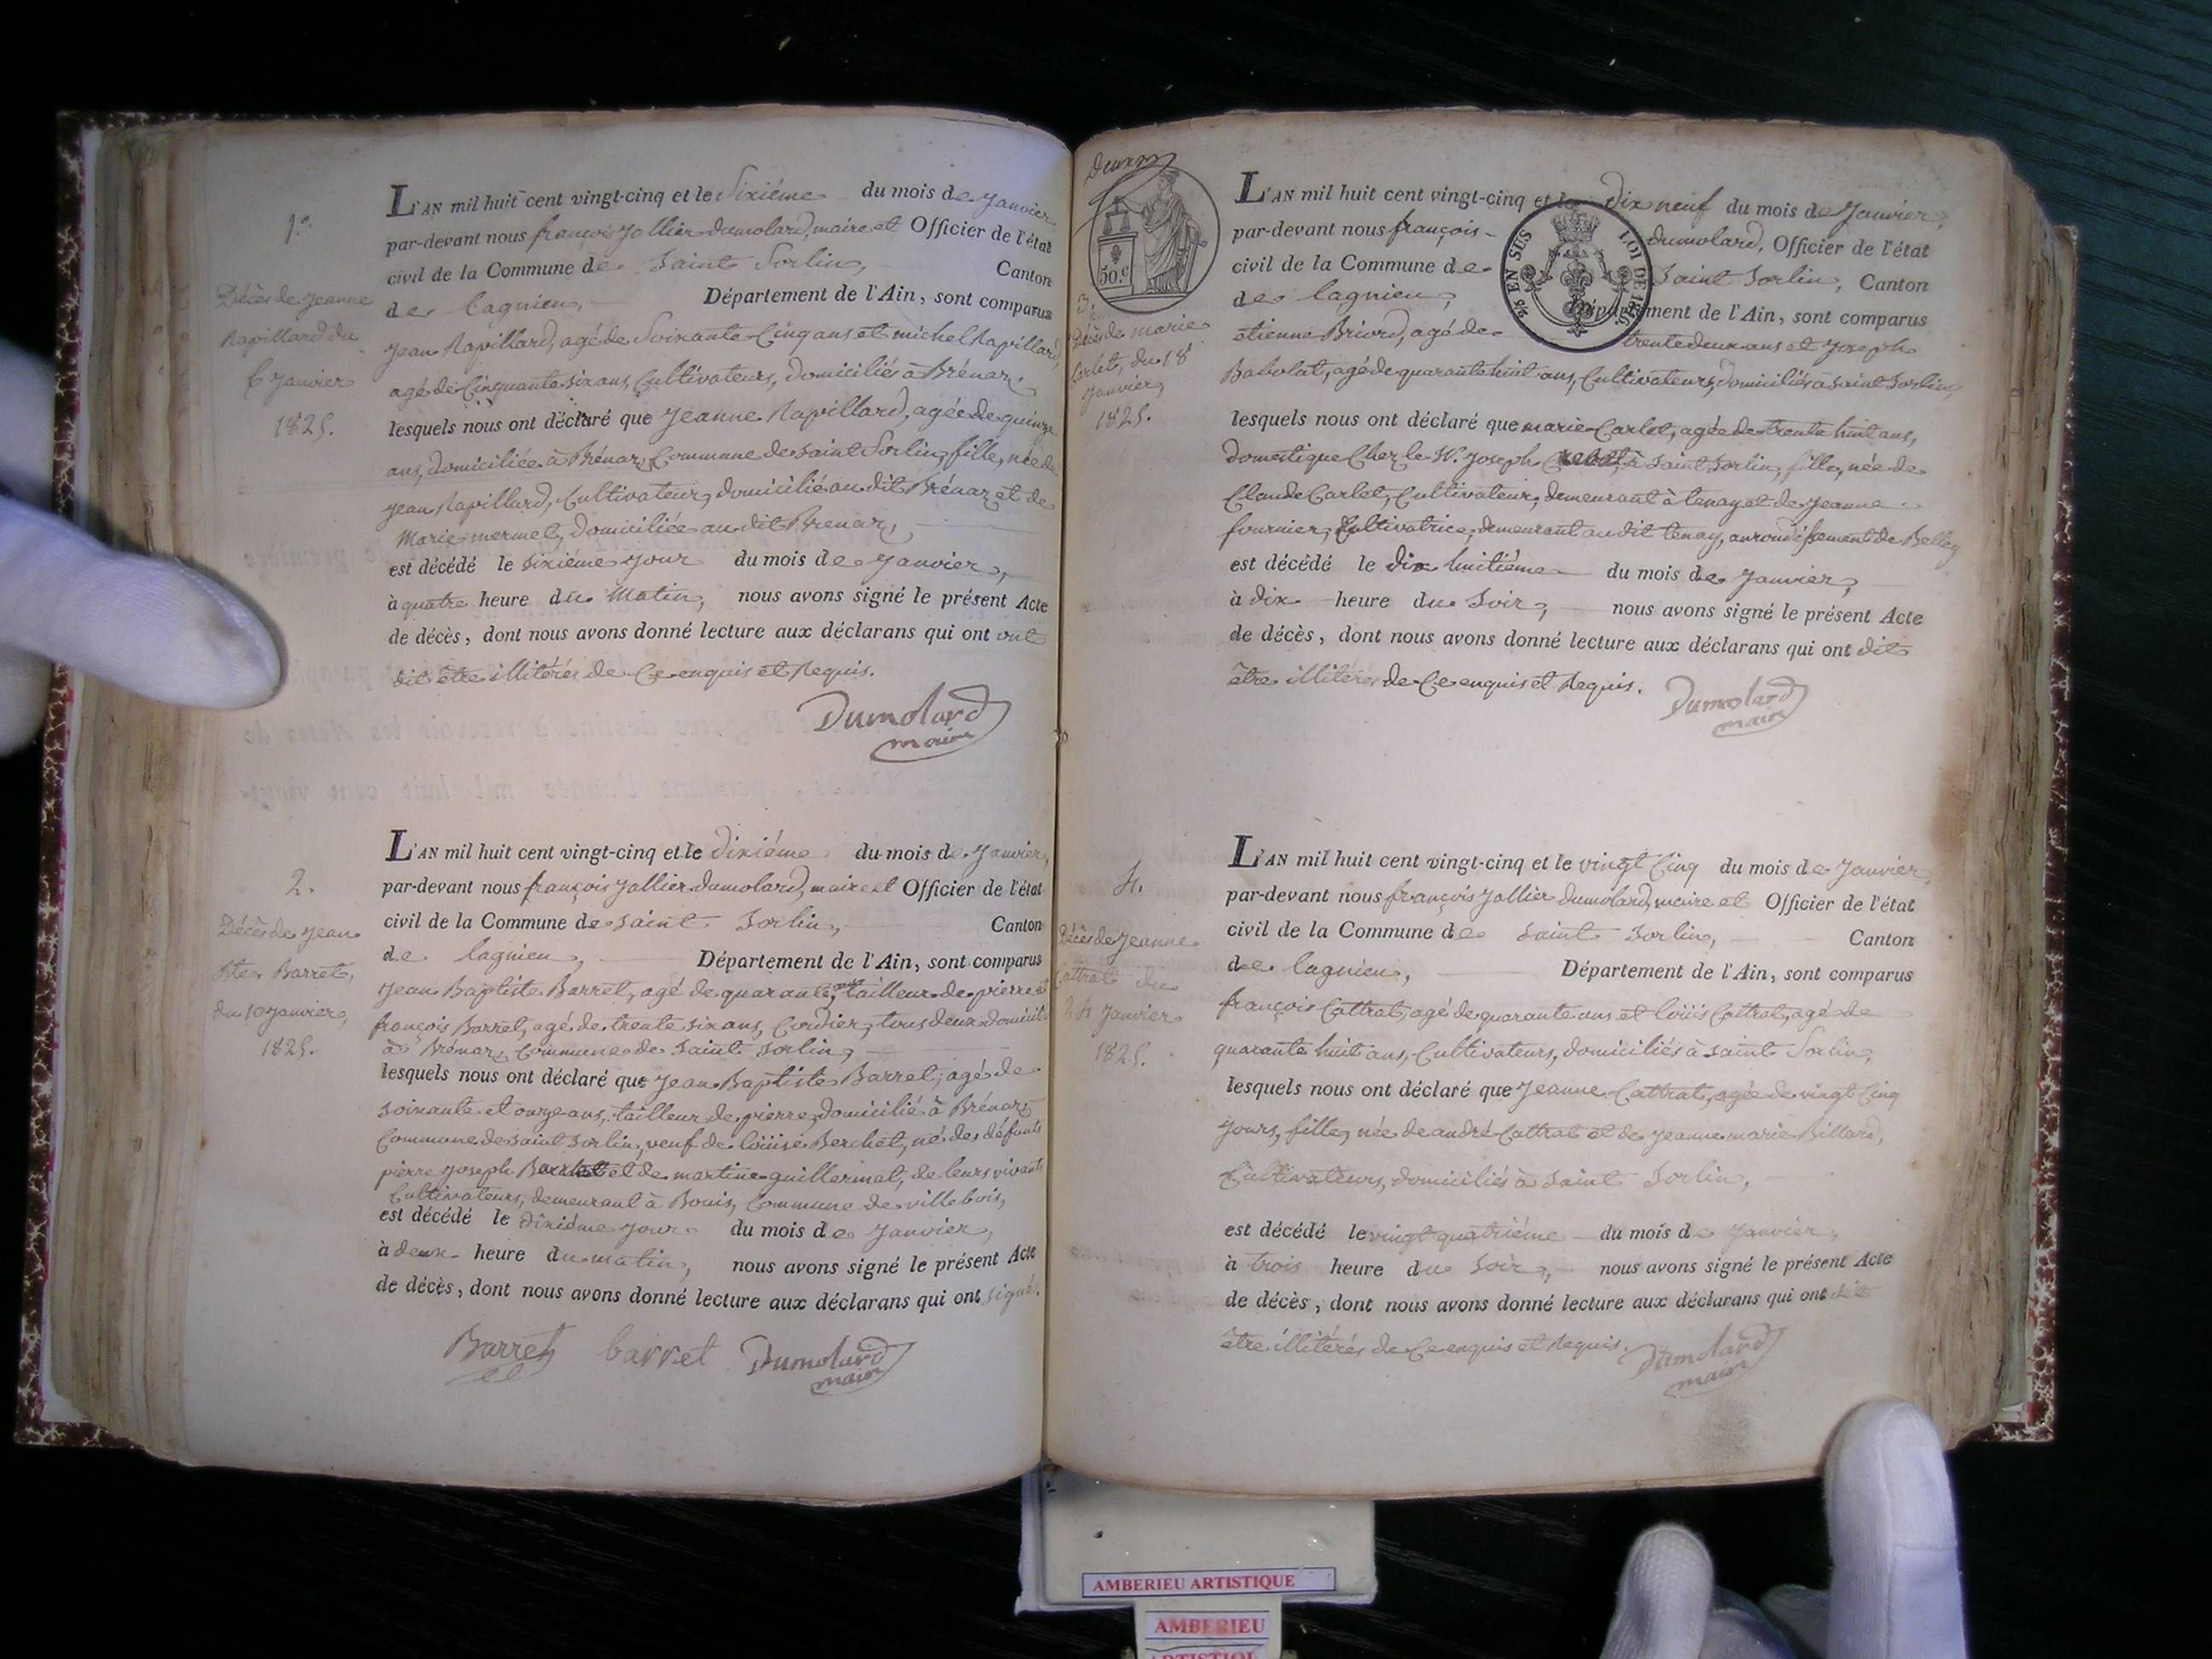 1º
Décès de Jeanne
Rapillard du
6 Janvier
1825.
L'AN mil huit cent vingt-cinq et le Sixiéme du mois de Janvier
par-devant nous françois Jallier dumolard, maire et Officier de l'état
civil de la Commune de Saint Sorlin, Canton
de lagnieu, Département de l'Ain, sont comparus
Jean Rapillard, agé de Soixante Cinq ans et michel Rapillard,
agé de Cinquante six ans, Cultivateurs, domiciliés à Brénaz,
lesquels nous ont déclaré que Jeanne Rapillard, agée de quinze
ans, domiciliée à Brénaz, Commune de saint Sorlin, fille, née de
Jean Rapillard, Cultivateur, domicilié au dit Brénaz et de
Marie mermet, domiciliée au dit Brenaz,
est décédé le sixiéme jour du mois de Janvier,
à quatre heure du Matin, nous avons signé le présent Acte
de décès, dont nous avons donné lecture aux déclarans qui ont ont
dit être illitérés de Ce enquis et Requis.
Dumolard
maire
2.
Décès de Jean
Bte. Barret,
du 10 Janvier,
1825.
L'AN mil huit cent vingt-cinq et le dixiéme du mois de Janvier,
par-devant nous françois Jallier dumolard, maire et Officier de l'état
civil de la Commune de saint Sorlin, Canton
de lagnieu, Département de l'Ain, sont comparus
Jean Baptiste Barret, agé de quarante ans, tailleur de pierre et
françois Barret, agé de trente six ans, Cordier, tous deux domiciliés
à Brénaz, Commune de Saint Sorlin,
lesquels nous ont déclaré que Jean Baptiste Barret, agé de
soixante et onze ans, tailleur de pierre, domicilié à Brénaz,
Commune de saint Sorlin, veuf de loüise Berchet, né des défunts
pierre Joseph Barret et de martine guillermat, de leurs vivants
Cultivateurs, demeurant à Bouis, Commune de villebois,
est décédé le dixiéme jour du mois de Janvier,
à deux heure du matin, nous avons signé le présent Acte
de décès, dont nous avons donné lecture aux déclarans qui ont signé.
Barret barret Dumolard
maire
Deux
50.c
3.
Décès de marie
Carlet, du 18
Janvier,
1825.
L'AN mil huit cent vingt-cinq et le dix neuf du mois de Janvier,
par-devant nous françois dumolard, Officier de l'état
civil de la Commune de Saint Sorlin, Canton
de lagnieu, Département de l'Ain, sont comparus
étienne Briord, agé de trente deux ans et Joseph
Babolat, agé de quarante huit ans, Cultivateurs, domiciliés à saint Sorlin,
lesquels nous ont déclaré que marie Carlet, agée de trente huit ans,
domestique Chez le Sr. Joseph à saint Sorlin, fille, née de
Claude Carlet, Cultivateur, demeurant à tenay et de Jeanne
fournier, Cultivatrice, demeurant au dit tenay, arrondissement de Belley
est décédé le dix huitiéme du mois de Janvier,
à dix heure du Soir, nous avons signé le présent Acte
de décès, dont nous avons donné lecture aux déclarans qui ont dit
être illitérés de Ce enquis et Requis.
Dumolard
maire
2/5 EN SUS LOI DE 1816
4.
Décès de Jeanne
Cattrat du
24 Janvier
1825.
L'AN mil huit cent vingt-cinq et le vingt Cinq du mois de Janvier,
par-devant nous françois Jallier dumolard, maire et Officier de l'état
civil de la Commune de saint Sorlin, Canton
de lagnieu, Département de l'Ain, sont comparus
françois Cattrat, agé de quarante ans et loüis Cattrat, agé de
quarante huit ans, Cultivateurs, domiciliés à saint Sorlin,
lesquels nous ont déclaré que Jeanne Cattrat, agée de vingt Cinq
Jours, fille, née de andré Cattrat et de Jeanne marie Billard,
Cultivateurs, domiciliés à saint Sorlin,
est décédé le vingt quatriéme du mois de Janvier,
à trois heure du Soir, nous avons signé le présent Acte
de décès, dont nous avons donné lecture aux déclarans qui ont dit
être illitérés de Ce enquis et Requis.
Dumolard
maire
AMBERIEU ARTISTIQUE
AMBERIEU
ARTISTIQUE